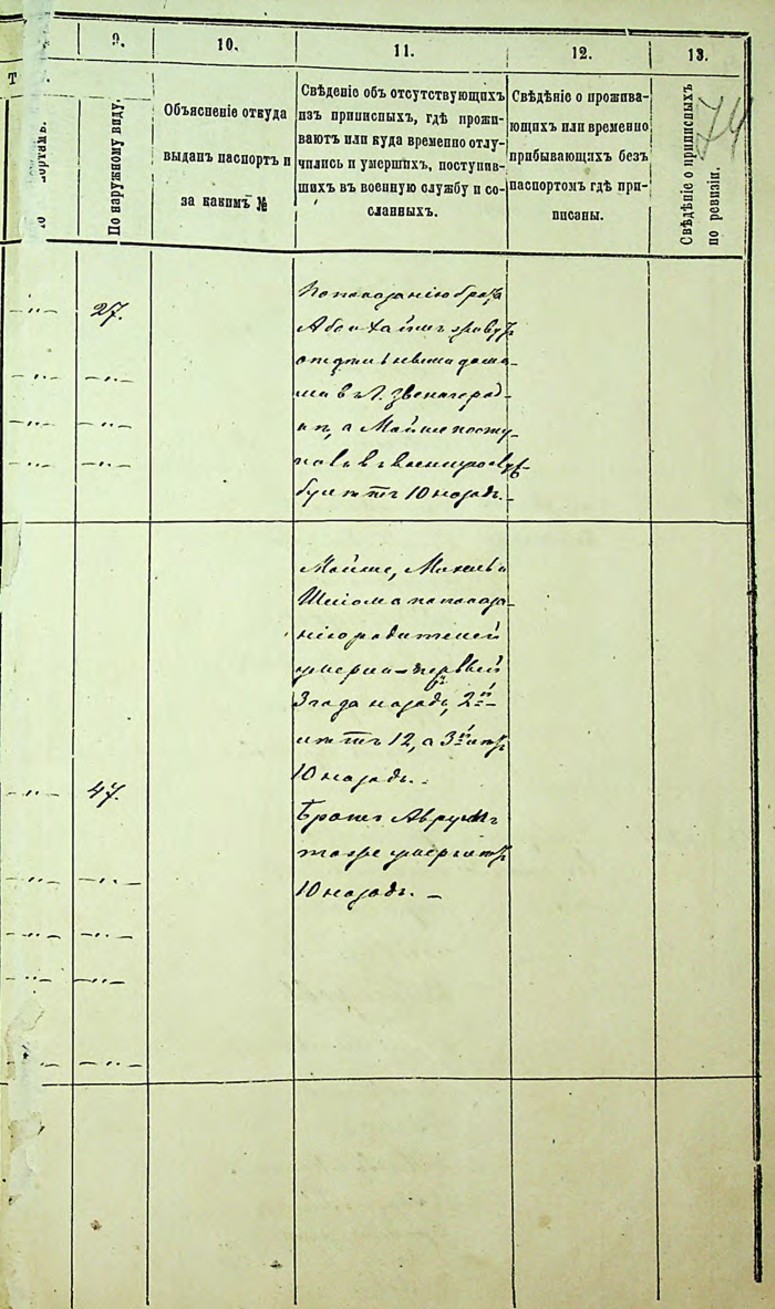 9.
10.
11.
12.
13.
Т
По наружному виду.
Объясненіе откуда
выданъ паспортъ и
за какимъ №
Свѣденіе объ отсутствующихъ
изъ приписныхъ, гдѣ прожи-
ваютъ или куда временно отлу-
чились и умершихъ, поступив-
шихъ въ военную службу и со-
сланныхъ.
Свѣдѣніе о прожива-
ющихъ или временно
прибывающихъ безъ
паспортомъ гдѣ при-
писаны.
Свѣдѣніе о приписныхъ
по ревизіи.
74
— " —
27.
По показанію брата
Аба и живутъ
домa-
ми в г. Звенигород-
кѣ, а Мойше посту-
пилъ в военную служ-
бу лѣтъ 10 назадъ. –
— " — — " —
— " — — " —
— " — — " —
Мойше, и
Шліома по показа-
нію родителей
умерли – первый
3 года назадъ, 2й –
лѣтъ 12, а 3й лѣтъ
10 назадъ. –
— " —
47.
Братъ Аврумъ
тоже умеръ лѣтъ
10 назадъ. –
— " — — " —
— " — — " —
— " — — " —
— " — — " —